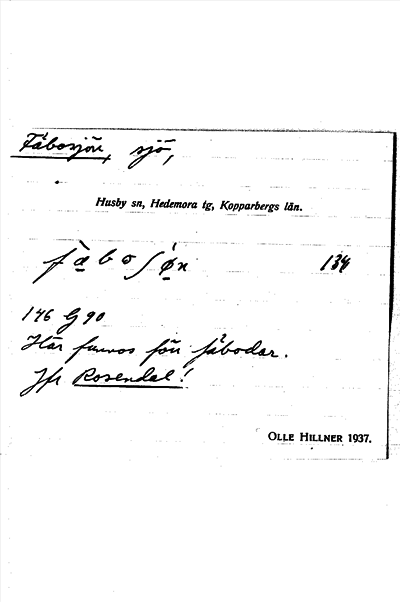 Fäbosjön, sjö,
Husby sn, Hedemora tg, Kopparbergs län.
fæ̀boſǿn 134
146 G 90
Här funnos förr fäbodar.
Jfr Rosendal!
OLLE HILLNER 1937.